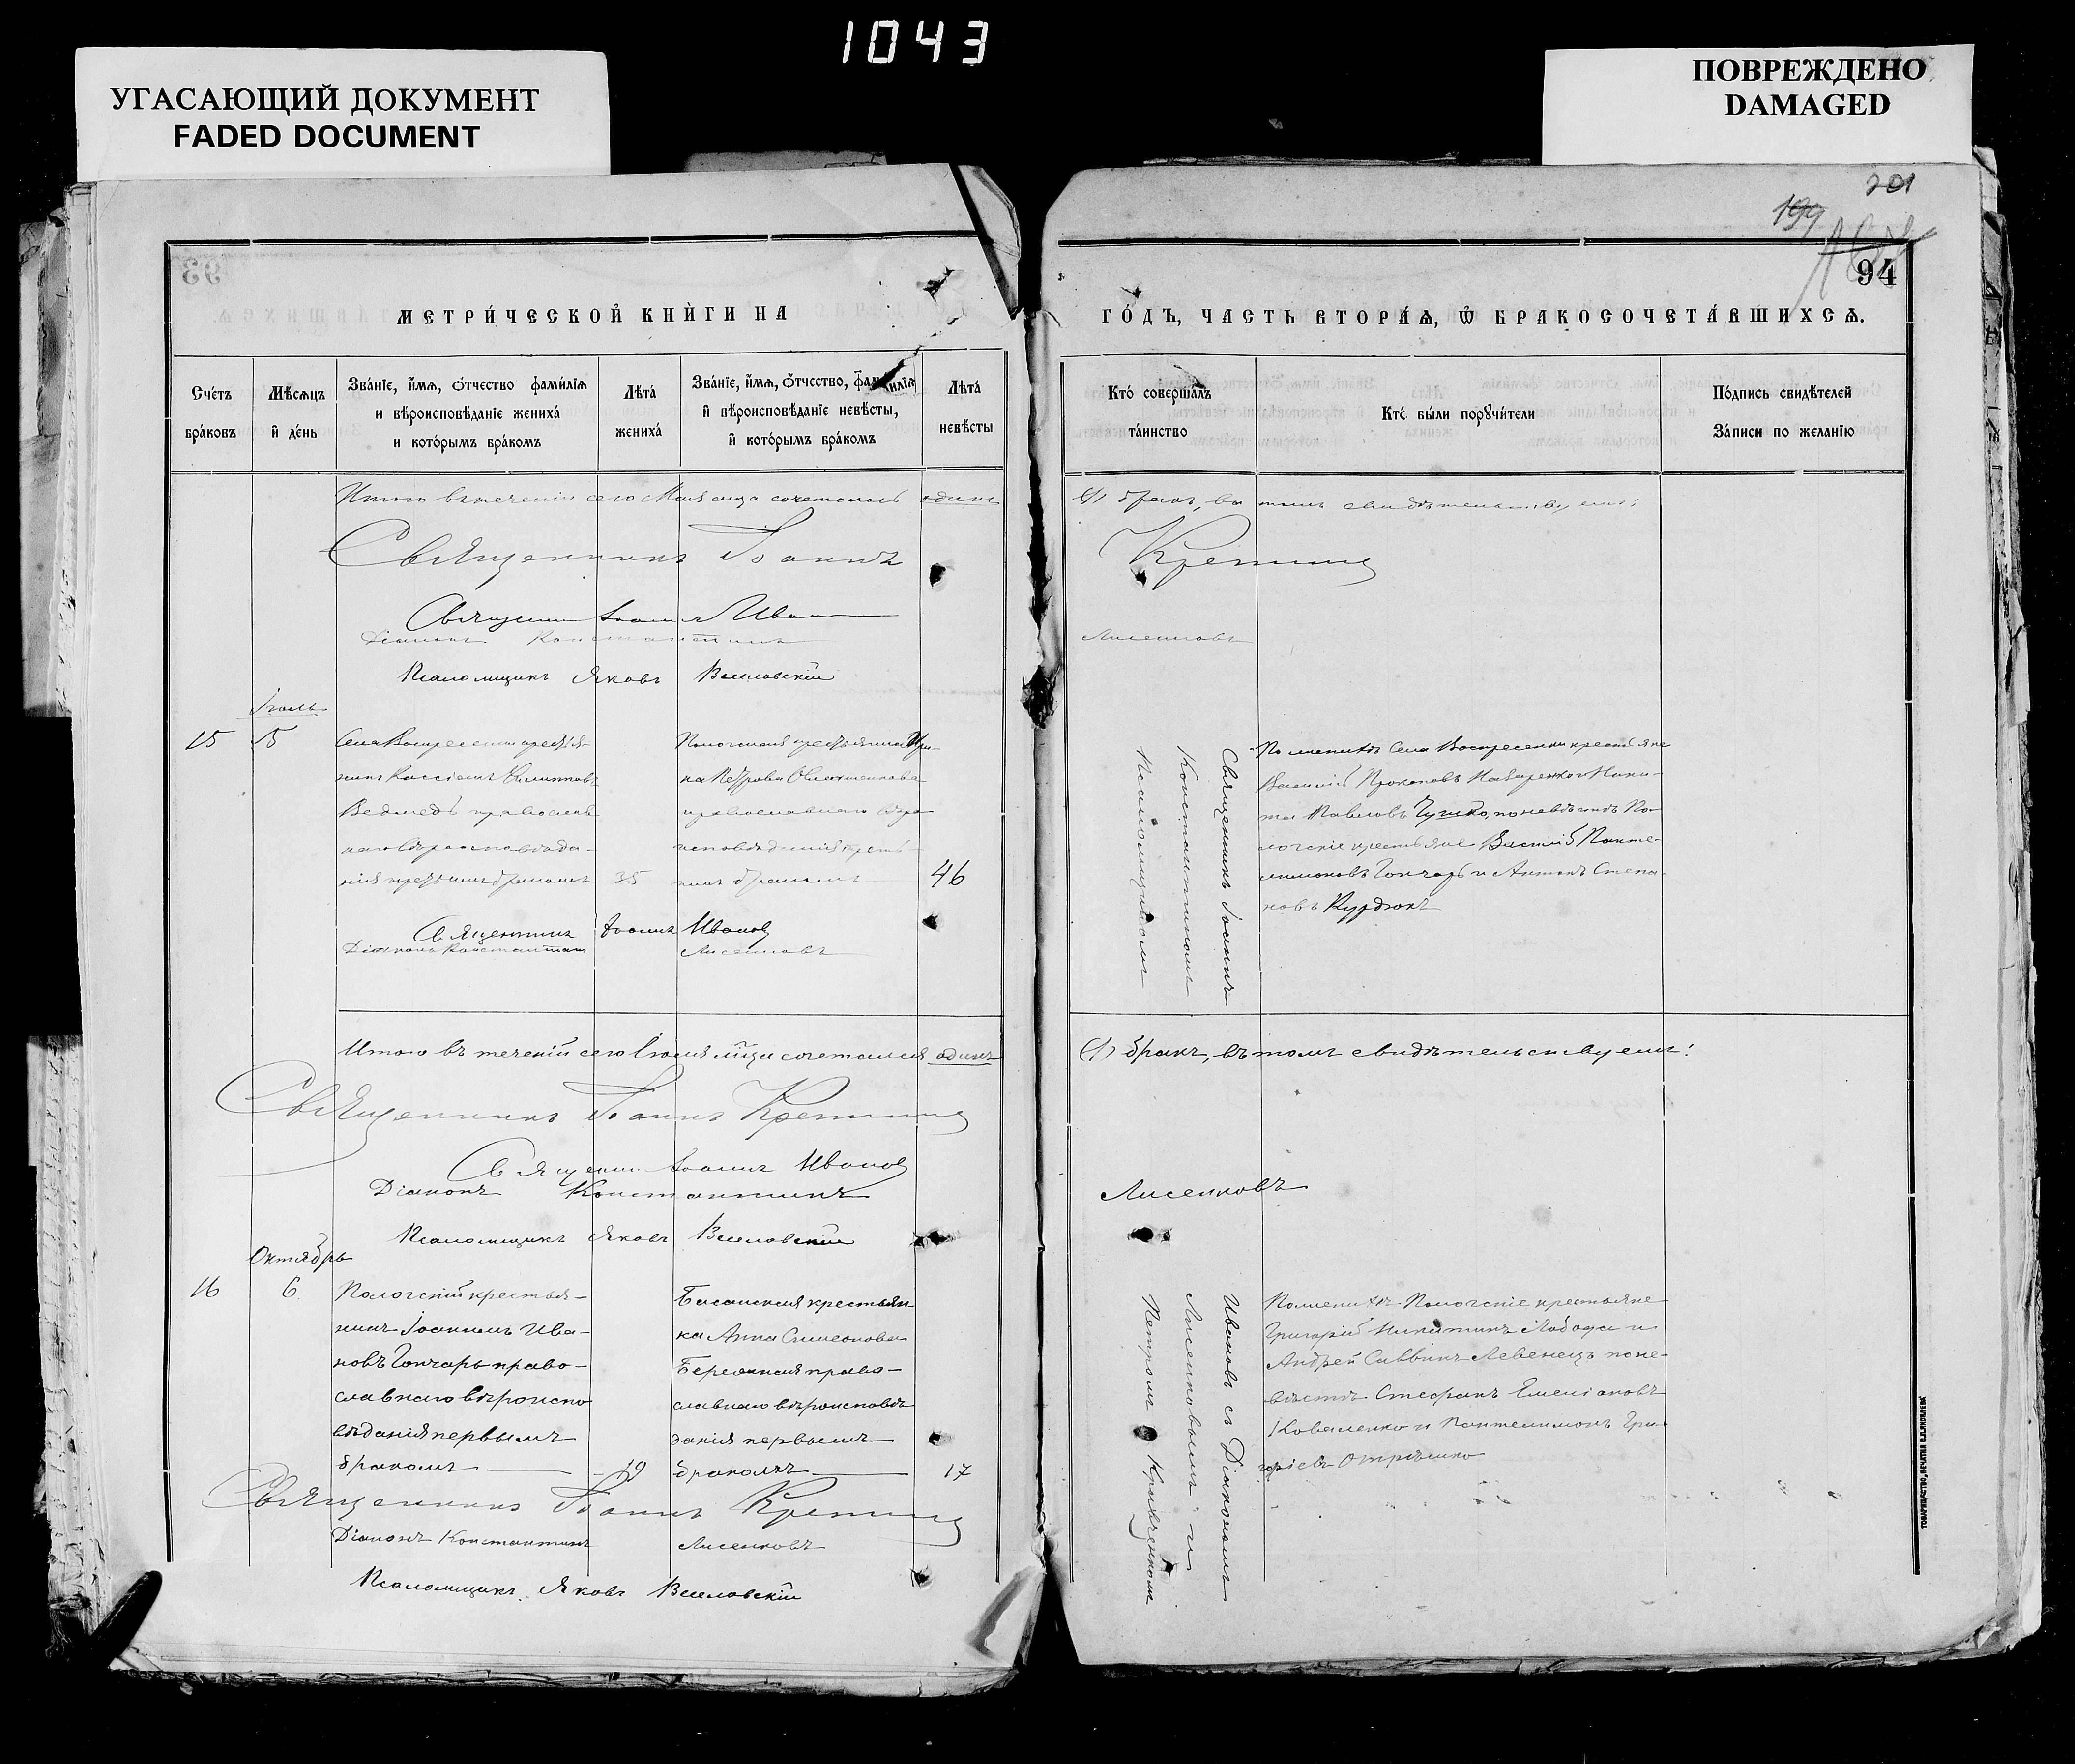 1043
УГАСАЮЩИЙ ДОКУМЕНТ
FADED DOCUMENT
ПОВРЕЖДЕНО
DAMAGED
201
199
94
МЕТРИ́ЧЕСКОЙ КНИ́ГИ НА
ГО́ДЪ, ЧАСТЬ ВТОРА́Ѧ, Ѿ БРАКОСОЧЕТА́ВШИХСѦ.
Сче́тъ бра́ковъ
Мѣ́сѧцъ й де́нь
Зва́нїе, и́мѧ, о́тчество фами́лїѧ и вѣроисповѣ́данїе жениха́ и кото́рымъ бра́комъ
Лѣта́ жениха́
Зва́нїе, и́мѧ, о́тчество, фами́лїѧ й вѣроисповѣ́данїе невѣ́сты, й кото́рымъ бра́комъ
Лѣта́ невѣ́сты
Кто́ соверша́лъ та́инство
Кто́ бы́ли порꙋчи́тели
По́дпись свидѣ́телей За́писи по жела́нїю
Итого въ теченіи сего Мая мѣсяца сочеталось одинъ (1) бракъ, въ томъ свидѣтельствуемъ:
Священникъ Іоаннъ
Священникъ Іоаннъ Иванов
Діаконъ Константинъ Лисенковъ
Псаломщикъ Яковъ Веселовскій
Іюль
15
15
Села Воскресенки крестья-
нинъ Кассіанъ Филипповъ
Ведмедь православ-
наго вѣроисповѣда-
нія третьимъ бракомъ
35
Пологская крестьянка Ири-
на Петрова
православнаго вѣро-
исповѣданія треть-
имъ бракомъ
46
Священникъ Іоаннъ
Константиномъ
Псаломщикомъ
По женихѣ Села Воскресенки крестьяне
Василій Прокоповъ Назаренко и Ники-
та Павловъ Чушко, по невѣстѣ По-
логскіе крестьяне Василій Панте-
лимоновъ Гончарь и Антонъ Степа-
новъ Курдюкъ
Священникъ Іоаннъ Иванов
Діаконъ Константинъ Лисенковъ
Итого въ теченіи сего Іюля мѣца сочетался одинъ (1) бракъ, въ томъ свидѣтельствуемъ:
Священникъ Іоаннъ
Священникъ Іоаннъ Иванов
Діаконъ Константинъ Лисенковъ
Псаломщикъ Яковъ Веселовскій
Октябрь
16
6
Пологскій крестья-
нинъ Іоакимъ Ива-
новъ Гончарь право-
славнаго вѣроиспо
вѣданія первымъ
бракомъ
19
Басанская крестьян-
ка Анна Симеонова
православнаго вѣроисповѣ
данія первымъ
бракомъ
17
Ивановъ съ Діакономъ
Лисенковымъ и
Петромъ Кравченкомъ
По женихѣ Пологскіе крестьяне
Григорій Никитинъ Лобода и
Андрей Саввинъ Левенецъ по не-
вѣстѣ Стефанъ Емеліановъ
Коваленко и Пантелимонъ Гри-
горіевъ Отрѣшко
Священникъ Іоаннъ
Діаконъ Константинъ Лисенковъ
Псаломщикъ Яковъ Веселовскій